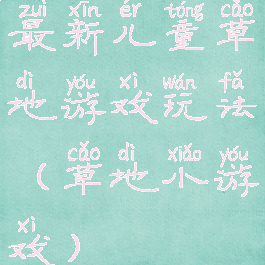 zuì xīn ér tóng cǎo
最新儿童草
dì yóu xì wán fǎ
地游戏玩法
cǎo dì xiǎo yóu
（草地小游
xì
戏）